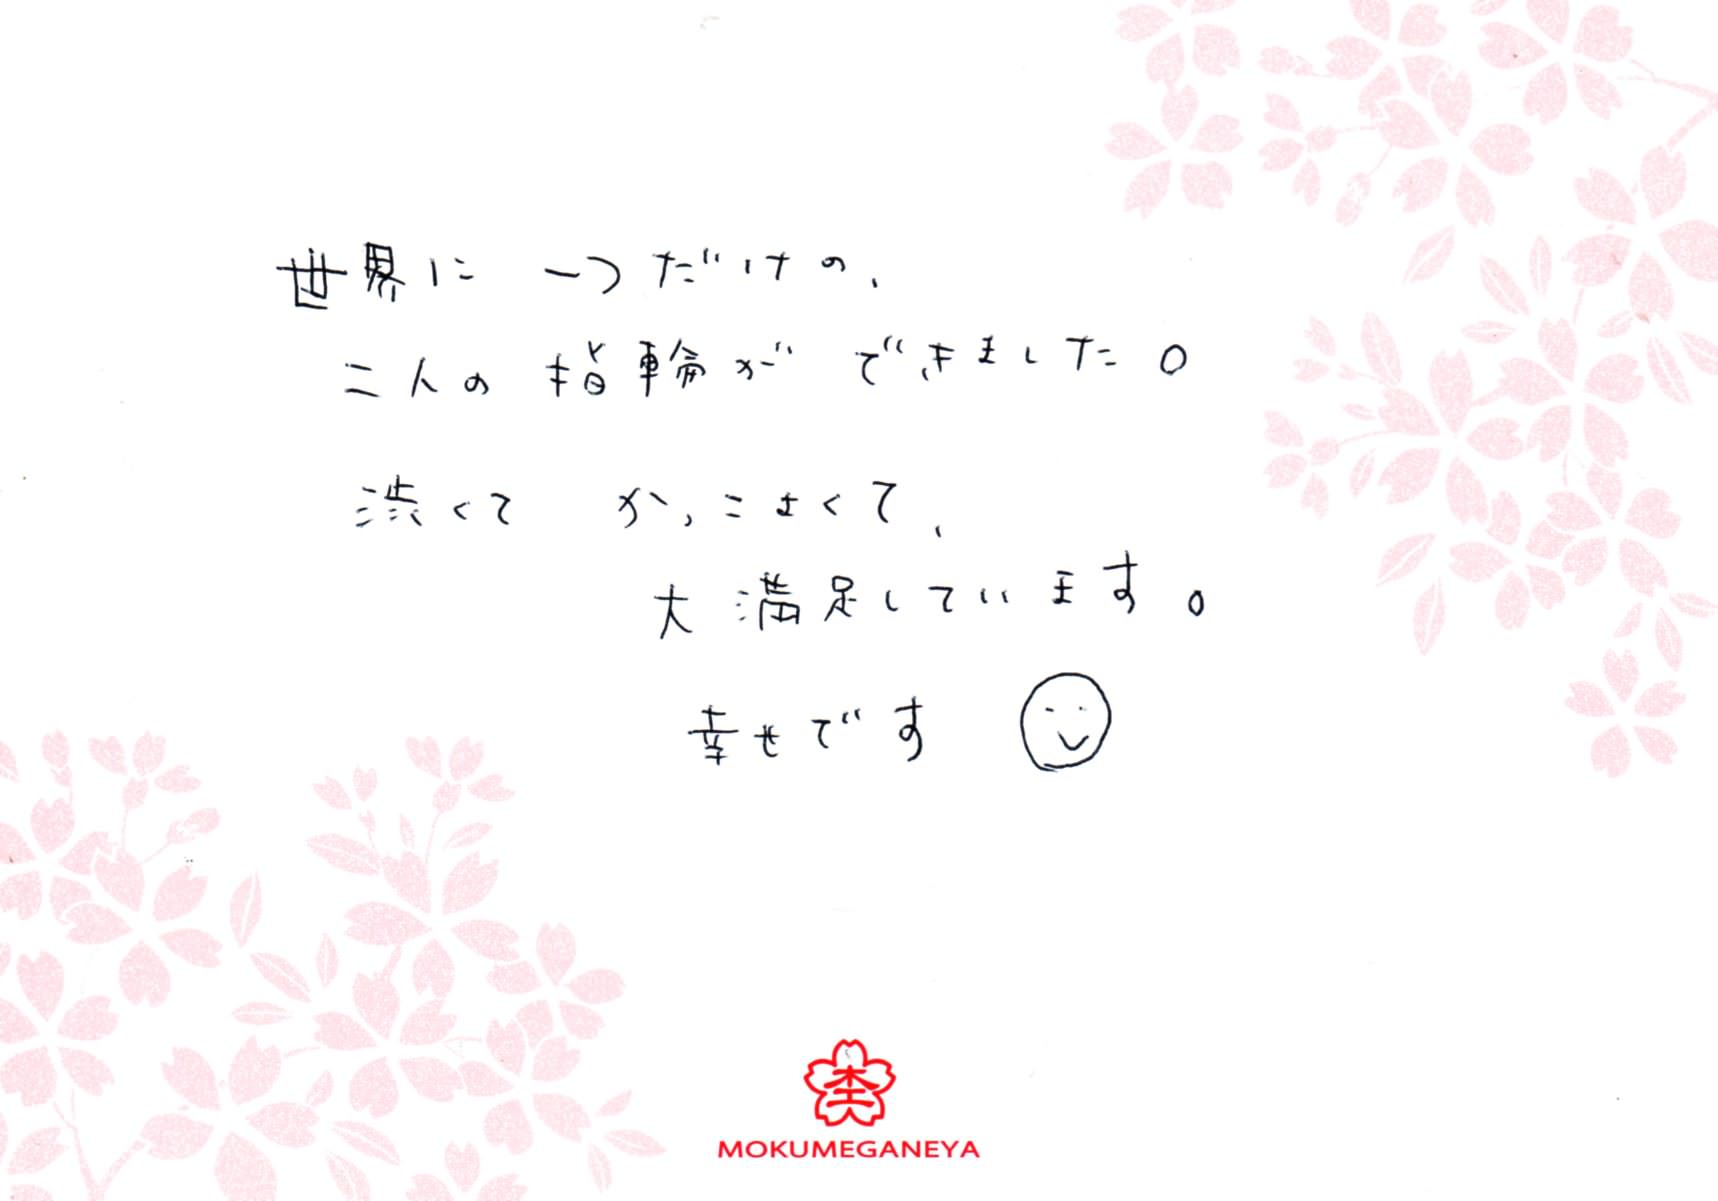 世界に 一つだけの、
二人の 指輪が できました。
渋くて かっこよくて、
大満足しています。
幸せです
MOKUMEGANEYA